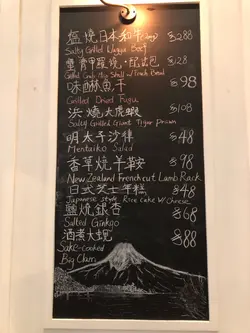 塩燒日本和牛 $288
Salty Grilled Wagyu Beef
蟹膏甲羅燒・配法包 $28
Grilled Crab Miso Shell w/ French Bread
味醂魚干 $98
Grilled Dried Fugu
浜燒大虎蝦 $108
Salty Grilled Giant Tiger Prawn
明太子沙律 $48
Mentaiko Salad
香草燒羊鞍 $98
New Zealand Frenchcut Lamb Rack
日式芝士年糕 $48
Japanese Style Rice Cake w/ Cheese
鹽燒銀杏 $68
Salted Ginkgo
酒煮大蜆 $88
Sake-cooked
Big Clam